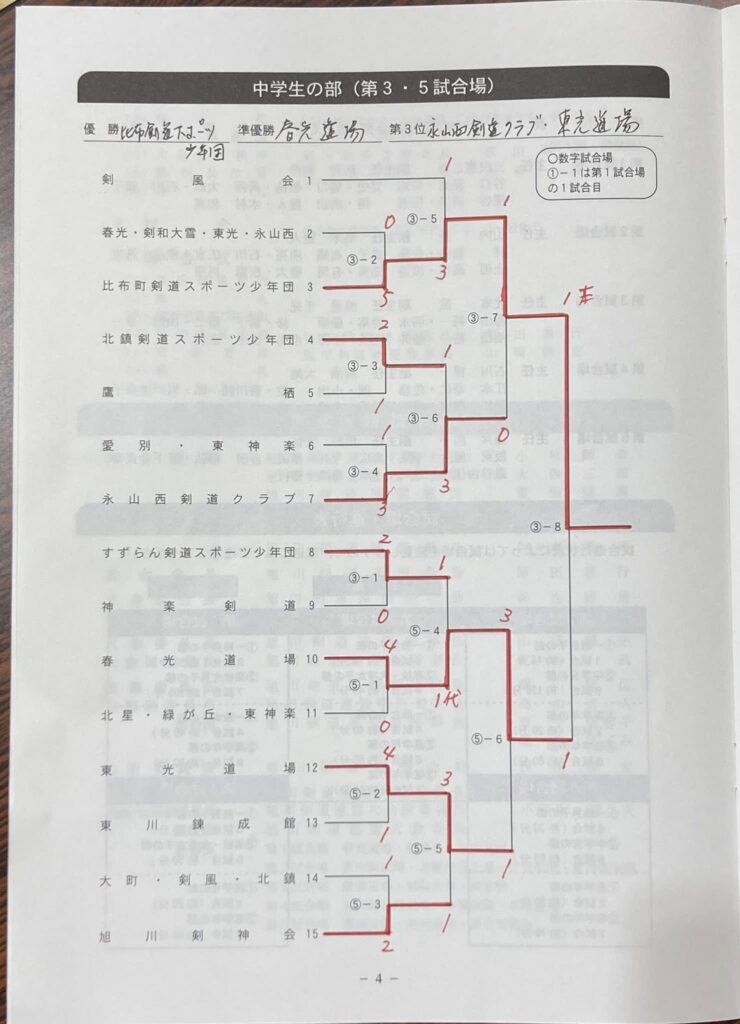 中学生の部（第３・５試合場）
優勝 比布剣道スポーツ少年団 準優勝 春光道場 第３位 永山西剣道クラブ・東光道場
○数字試合場
①－１は第１試合場
の１試合目
剣風会 1 1
③－5 1
春光・剣和大雪・東光・永山西 2 0
③－2
比布町剣道スポーツ少年団 3 5 3
③－7 1本
北鎮剣道スポーツ少年団 4 2
③－3 1
鷹栖 5 1
③－6 0
愛別・東神楽 6 1
③－4 3
永山西剣道クラブ 7 3
③－8
すずらん剣道スポーツ少年団 8 2
③－1 1
神楽剣道 9 0
⑤－4 3
春光道場 10 4
⑤－1 1代
北星・緑が丘・東神楽 11 0
⑤－6 1
東光道場 12 4
⑤－2 3
東川錬成館 13 1
⑤－5 1
大町・剣風・北鎮 14 1
⑤－3 1
旭川剣神会 15 2
－ 4 －